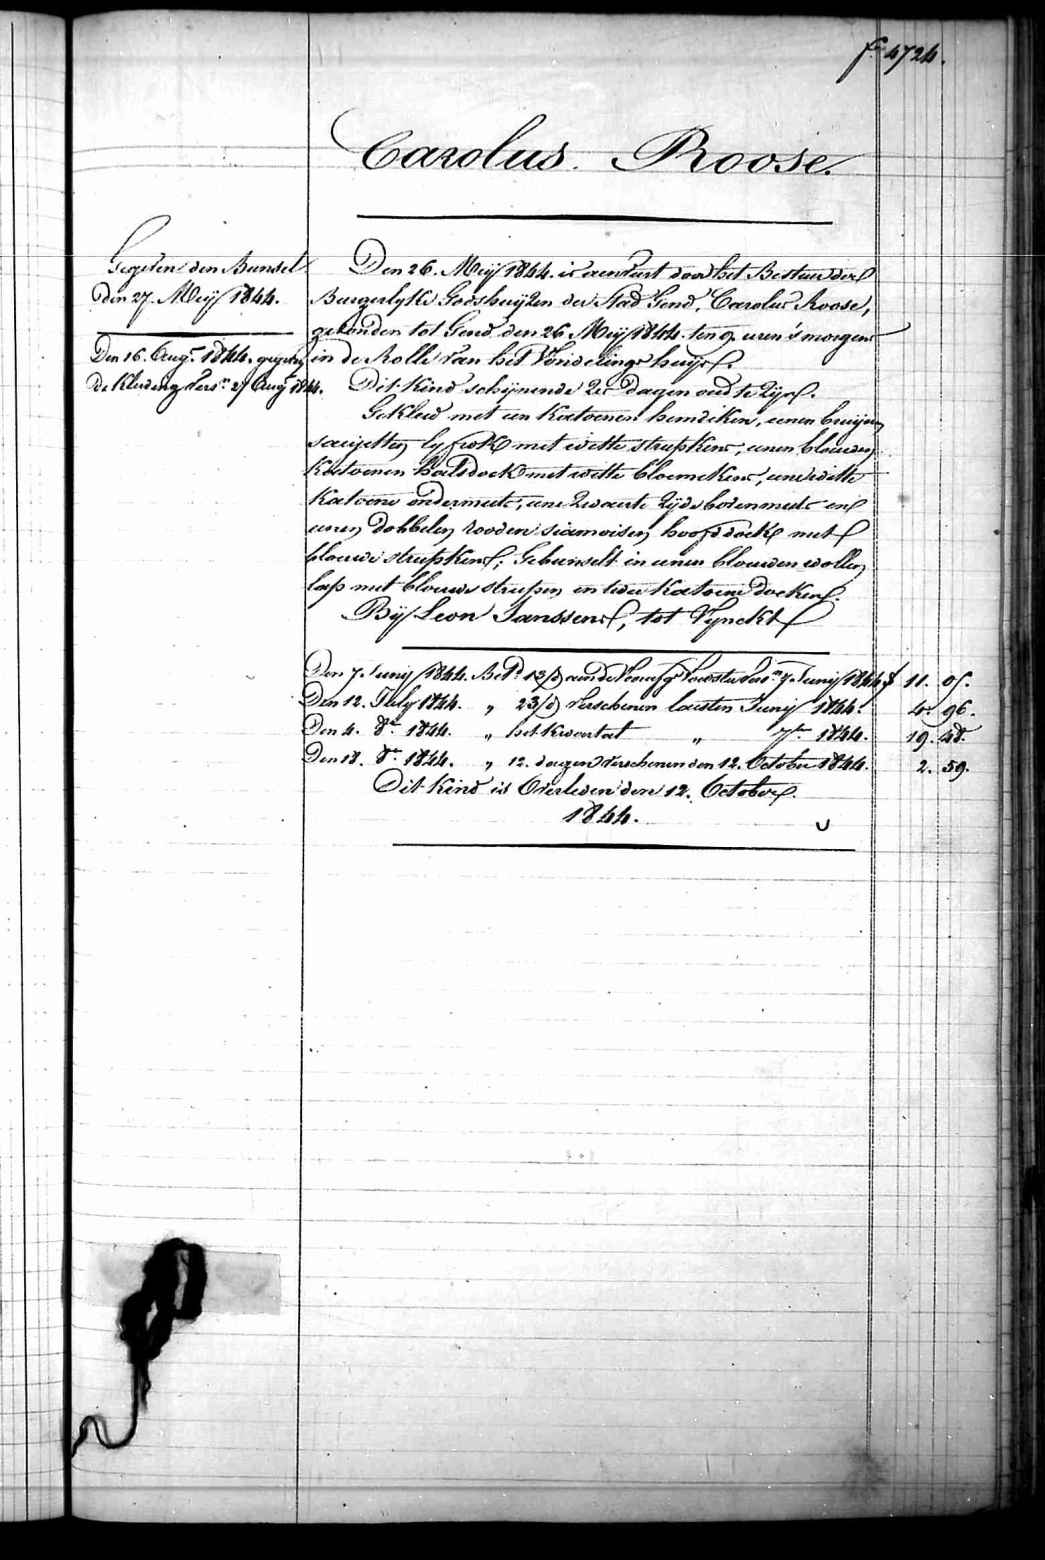 fo 4724.
Carolus Roose.
Gegeven den Bunsel
den 27. Meij 1844.
Den 16. Augt 1844. gegeven
de Kleeding versn 27 Augt 1844.
Den 26. Meij 1844. is aenveert door het Bestuur der
Burgerlyke Godshuijzen der Stad Gend, Carolus Roose,
gevonden tot Gend den 26 Meij 1844. ten 9 uren 's morgens
in de Rolle van het Vondelings huijs.
Dit Kind schijnende dagen oud te zijn.
Gekleed met een Katoenen hemdeken, eenen bruijnen
saeijetten lyfrok met witte streepkens, eenen blauwen
Katoenen halsdoek met witte bloemekens, eene witte
Katoene ondermuts, eene zwarte zijde bovenmuts en
eenen dobbelen rooden siamoisen hoofddoek met
blauwe streepkens; Gebunselt in eenen blauwen wollen
lap met blauwe streepen en twee Katoene doeken.
Bij Leon Janssens, tot Vynckt
Den 7. Junij 1844. Betd 13/d aan de Voedster 7. Junij 1844 f 11. 05.
Den 12. July 1844. " 23/d verschenen laesten Junij 1844. 4. 96.
Den 4. 8er 1844. " het Kwartael " 7er 1844. 19. 48.
Den 18. 8er 1844. " 12. dagen verschenen den 12. October 1844. 2. 59.
Dit Kind is Overleden den 12. October
1844.